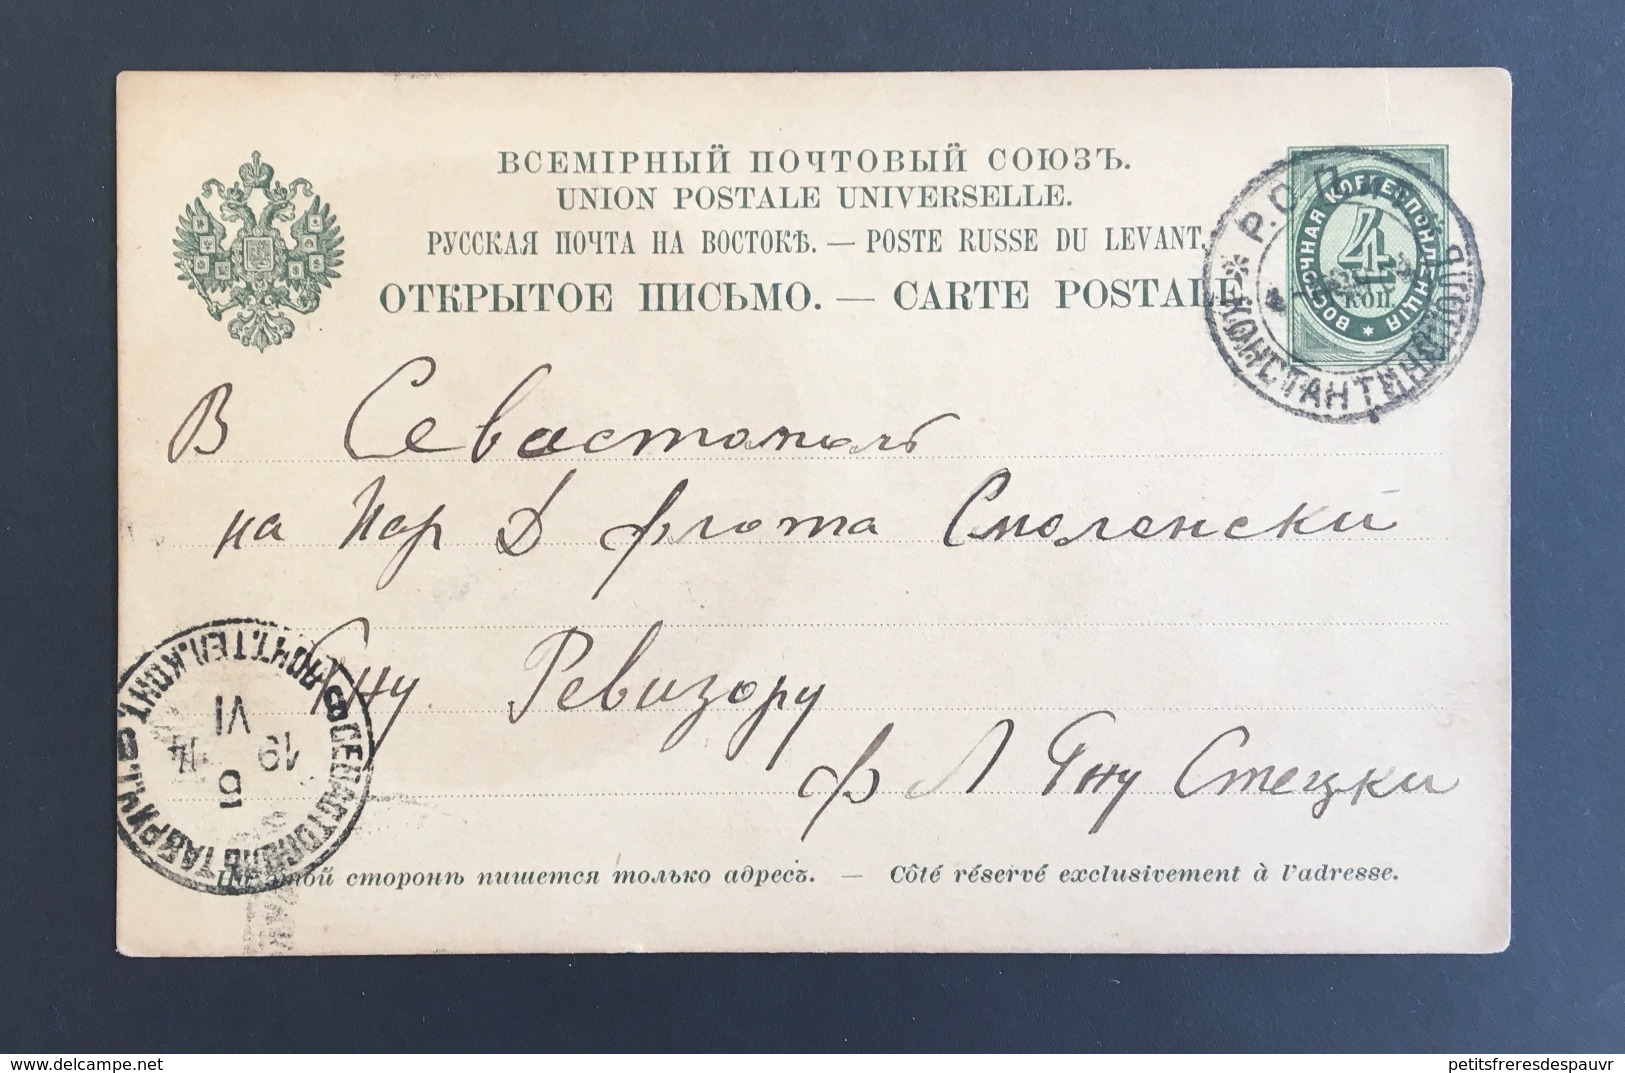 ВСЕМІРНЫЙ ПОЧТОВЫЙ СОЮЗЪ.
UNION POSTALE UNIVERSELLE.
РУССКАЯ ПОЧТА НА ВОСТОКѢ. — POSTE RUSSE DU LEVANT.
ОТКРЫТОЕ ПИСЬМО. — CARTE POSTALE
ВОСТОЧНАЯ КОРРЕСПОНДЕНЦІЯ
4
КОП.
КОНСТАНТИНОПОЛЬ
В Севастополь
на Пар Д флота Смоленскъ
Гну Ревизору
ф Л Гну Стецки
СЕВАСТОПОЛЬ ТАВРИЧ. ПОЧТ.ТЕЛ.КОНТ.
VI
19 14
10
На этой сторонѣ пишется только адресъ. — Côté réservé exclusivement à l'adresse.
petitsfreresdespauvr